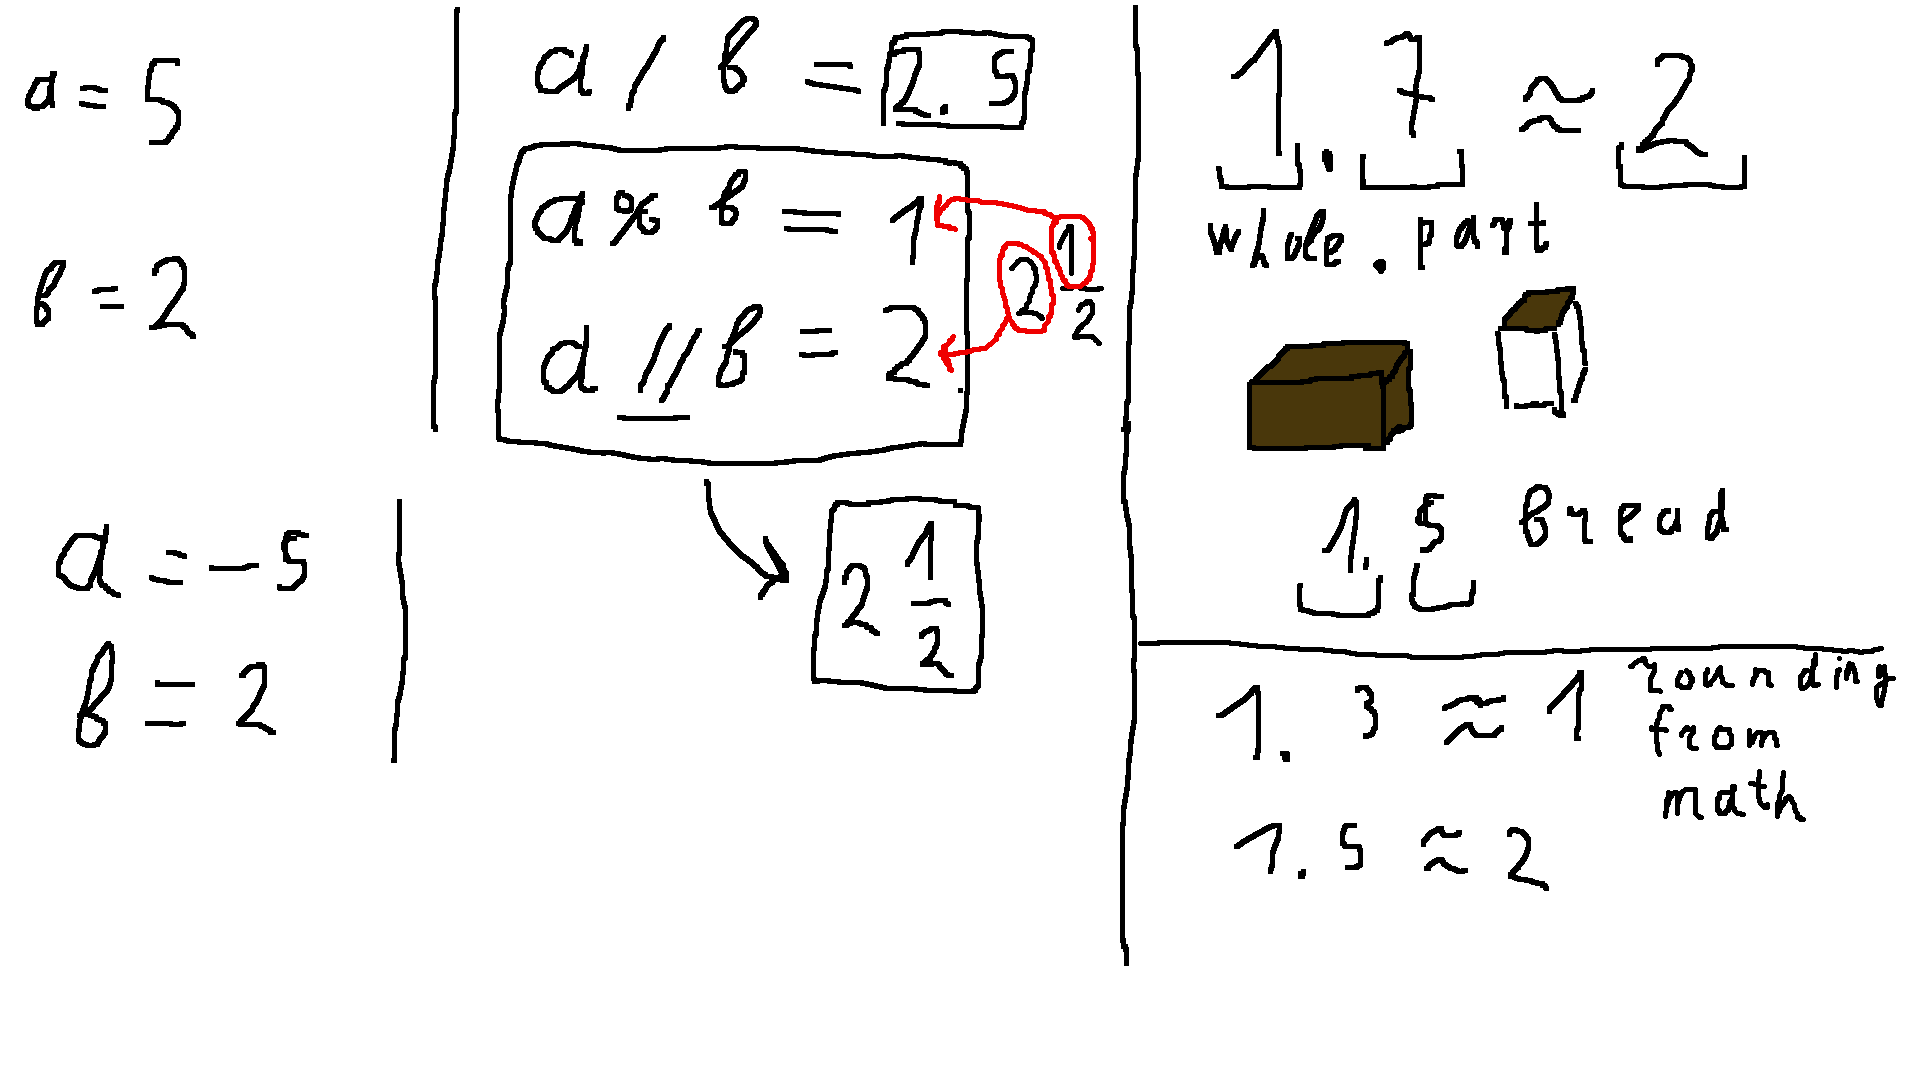 a = 5
b = 2
a = -5
b = 2
a / b = 2.5
a % b = 1
a // b = 2
2 1/2
2 1/2
1.7 ≈ 2
whole . part
1.5 bread
1.3 ≈ 1
rounding
from
math
1.5 ≈ 2